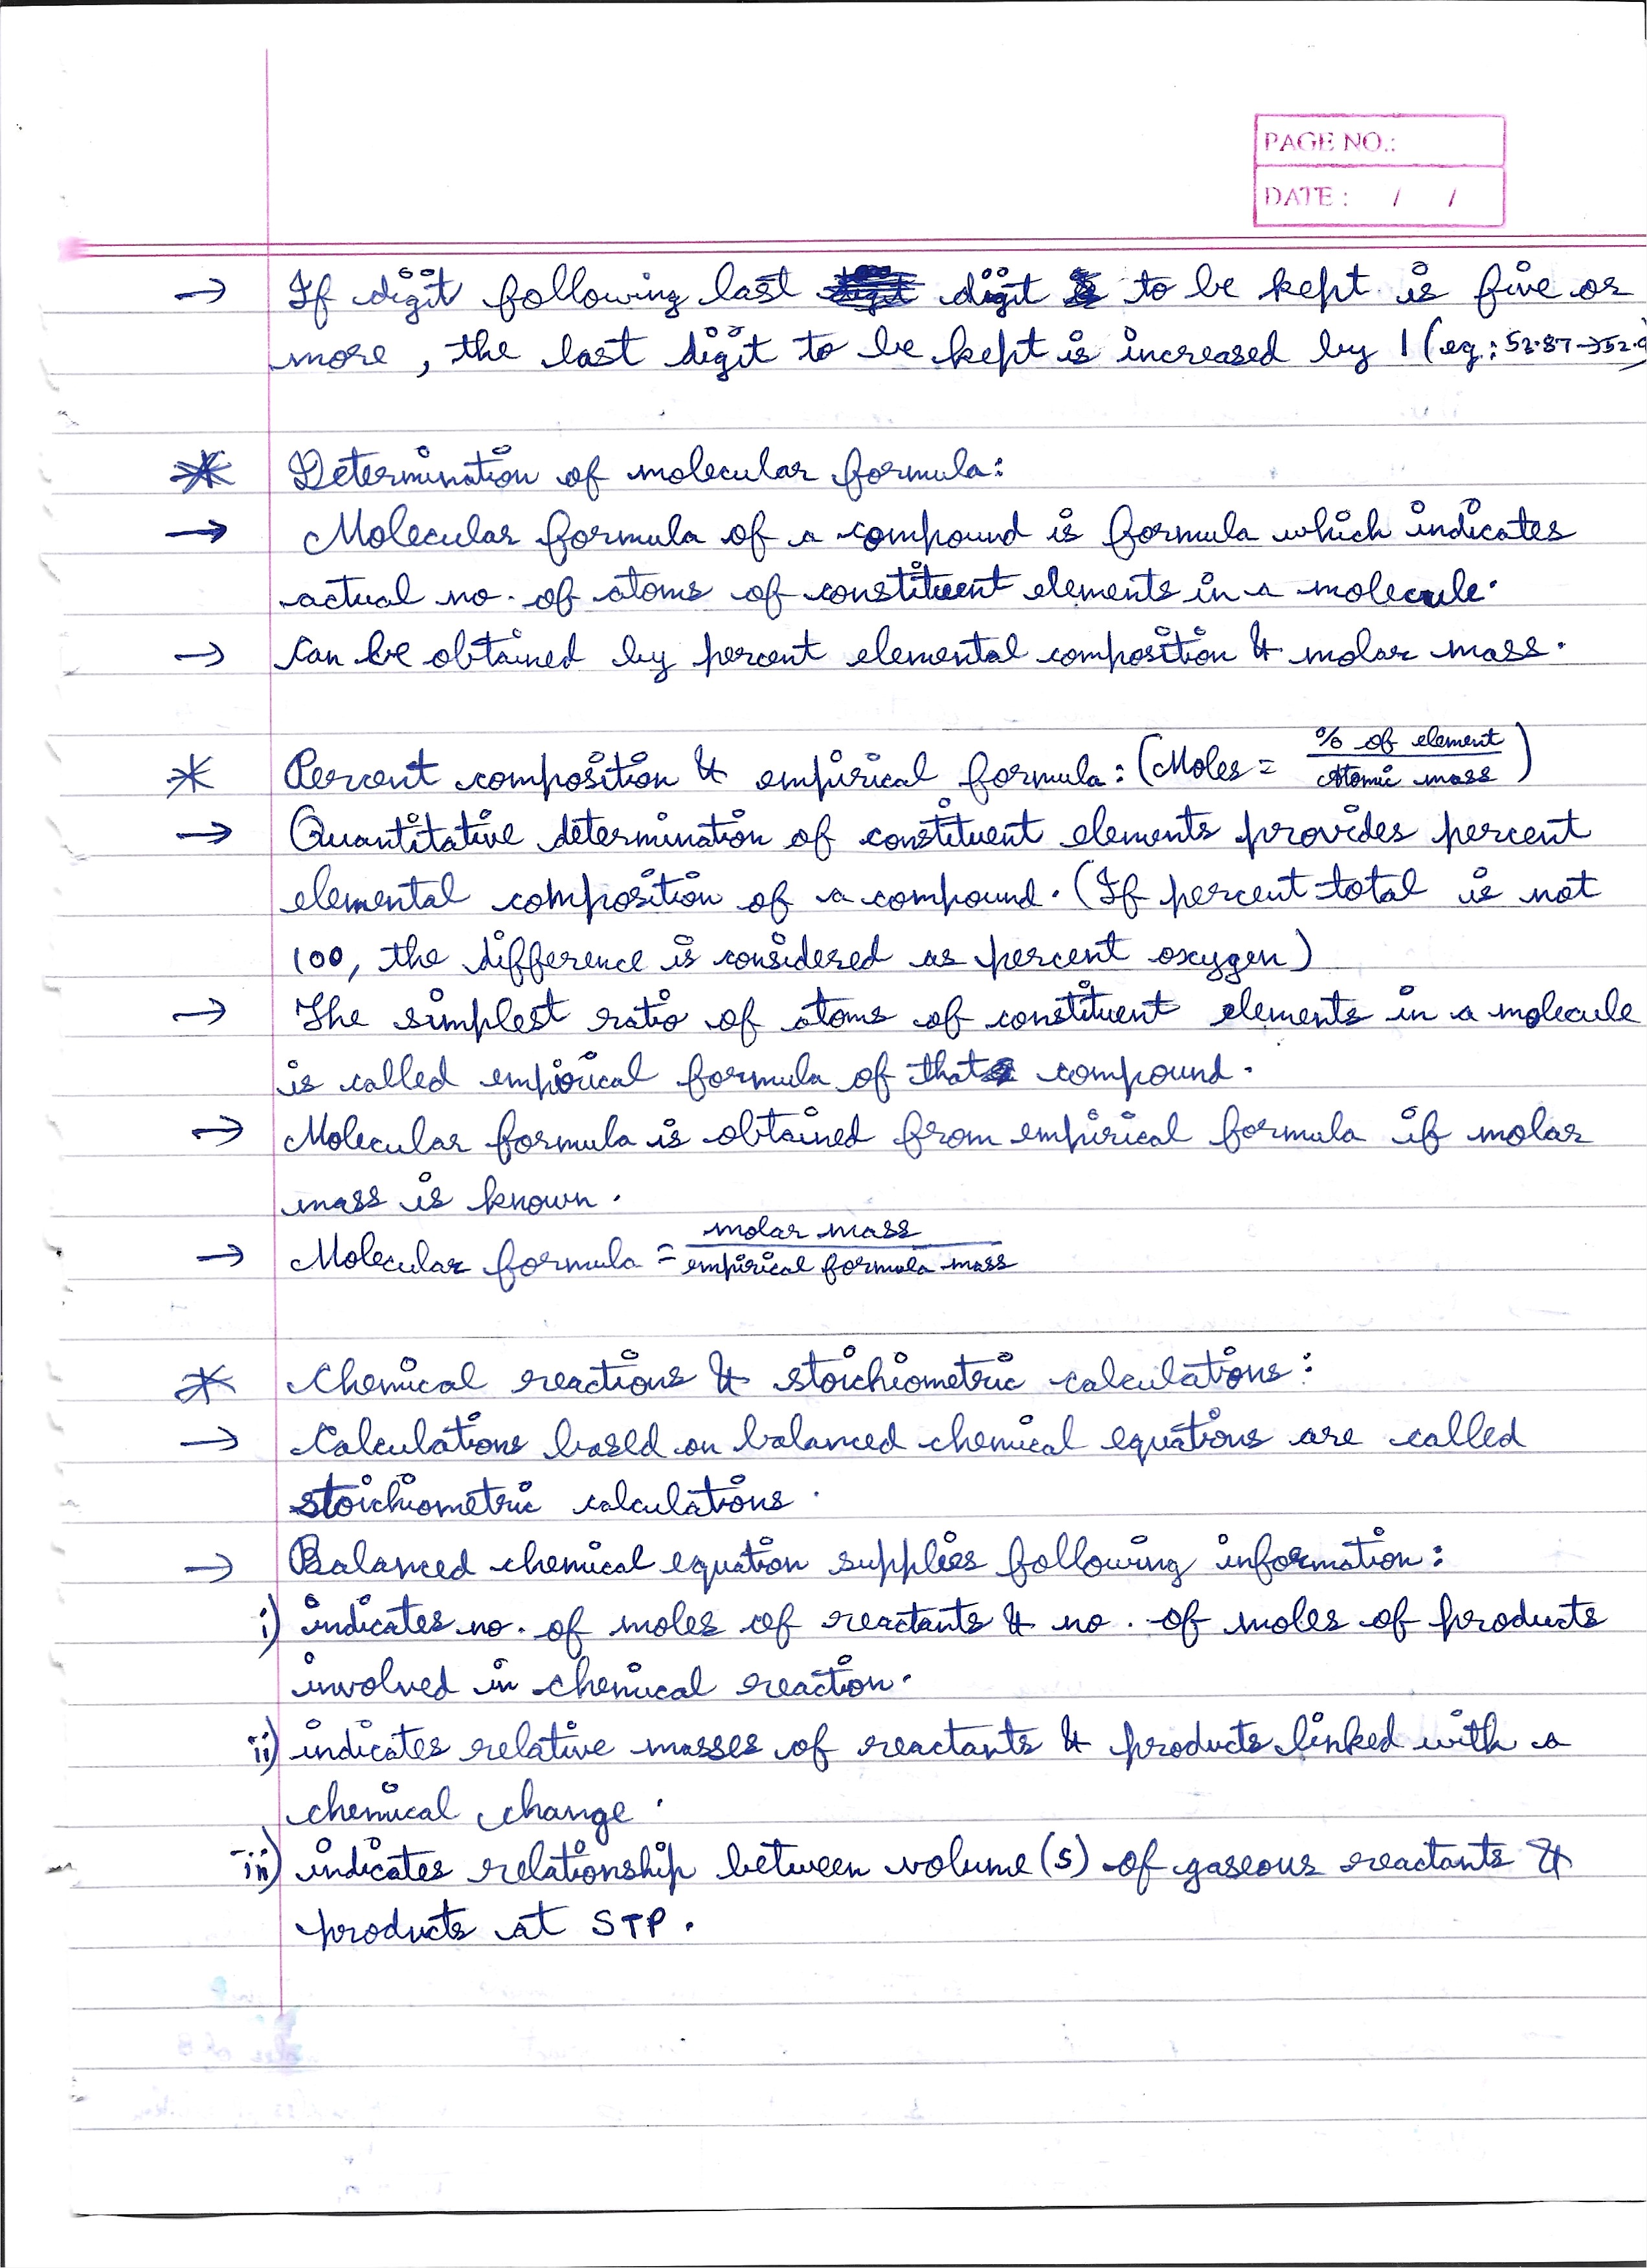 PAGE NO.:
DATE : / /
→ If digit following last digit to be kept is five or
more, the last digit to be kept is increased by 1 (eg: 52.87→52.9
* Determination of molecular formula:
→ Molecular formula of a compound is formula which indicates
actual no. of atoms of constituent elements in a molecule.
→ Can be obtained by percent elemental composition & molar mass.
* Percent composition & empirical formula: (Moles = % of element / Atomic mass)
→ Quantitative determination of constituent elements provides percent
elemental composition of a compound. (If percent total is not
100, the difference is considered as percent oxygen)
→ The simplest ratio of atoms of constituent elements in a molecule
is called empirical formula of that compound.
→ Molecular formula is obtained from empirical formula if molar
mass is known.
→ Molecular formula = molar mass / empirical formula mass
* Chemical reactions & stoichiometric calculations:
→ Calculations based on balanced chemical equations are called
stoichiometric calculations.
→ Balanced chemical equation supplies following information:
i) indicates no. of moles of reactants & no. of moles of products
involved in chemical reaction.
ii) indicates relative masses of reactants & products linked with a
chemical change.
iii) indicates relationship between volume(s) of gaseous reactants &
products at STP.